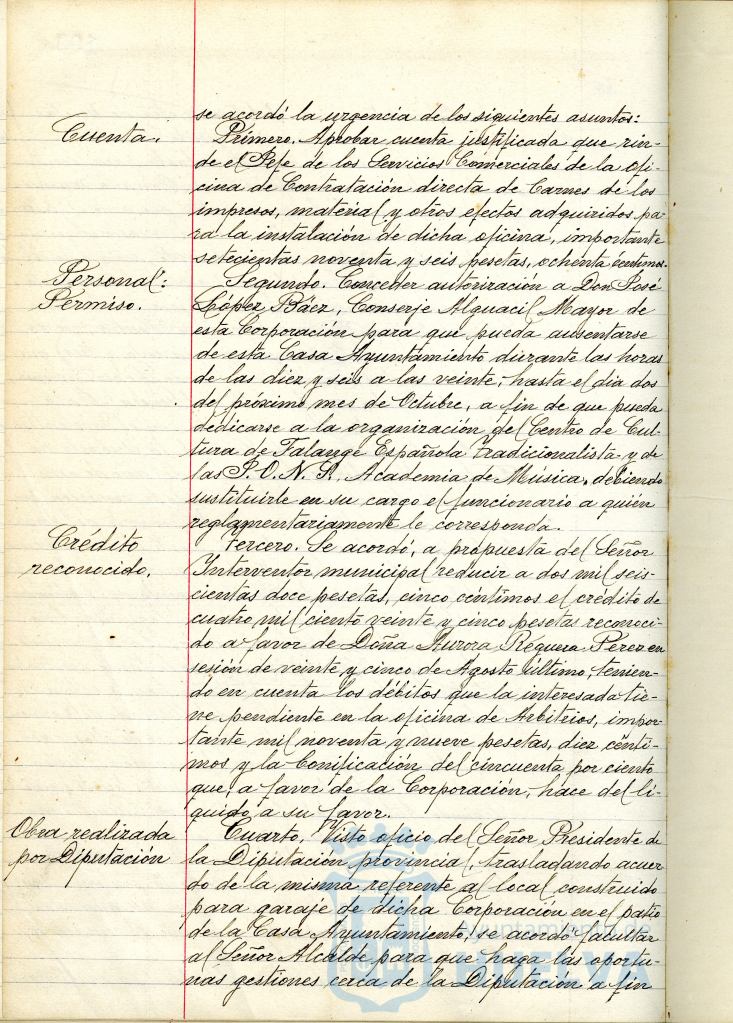 se acordó la urgencia de los siguientes asuntos:
Cuenta.
Primero. Aprobar cuenta justificada que rin-
de el Jefe de los Servicios Comerciales de la ofi-
cina de Contratación directa de Carnes de los
impresos, material y otros efectos adquiridos pa-
ra la instalación de dicha oficina, importante
setecientas noventa y seis pesetas, ochenta céntimos.
Personal:
Permiso.
Segundo. Conceder autorización a Don José
López Báez, Conserje Alguacil Mayor de
esta Corporación para que pueda ausentarse
de esta Casa Ayuntamiento durante las horas
de las diez y seis a las veinte, hasta el dia dos
del próximo mes de Octubre, a fin de que pueda
dedicarse a la organización del Centro de Cul-
tura de Falange Española Tradicionalista y de
las J.O.N.S. Academia de Música, debiendo
sustituirle en su cargo el funcionario a quién
reglamentariamente le corresponda.
Crédito
reconocido.
Tercero. Se acordó, a propuesta del Señor
Interventor municipal reducir a dos mil seis-
cientas doce pesetas, cinco céntimos el crédito de
cuatro mil ciento veinte y cinco pesetas reconoci-
do a favor de Doña Aurora Reguera Pérez en
sesión de veinte y cinco de Agosto último, tenien-
do en cuenta los débitos que la interesada tie-
ne pendiente en la oficina de Arbitrios, impor-
tante mil noventa y nueve pesetas, diez cénti-
mos y la bonificación del cincuenta por ciento
que, a favor de la Corporación, hace del lí-
quido a su favor.
Obra realizada
por Diputación
Cuarto. Visto oficio del Señor Presidente de
la Diputación provincial, trasladando acuer-
do de la misma referente al local construido
para garaje de dicha Corporación en el patio
de la Casa Ayuntamiento, se acordó facultar
al Señor Alcalde para que haga las oportu-
nas gestiones cerca de la Diputación a fin
Ayuntamiento de
HUELVA